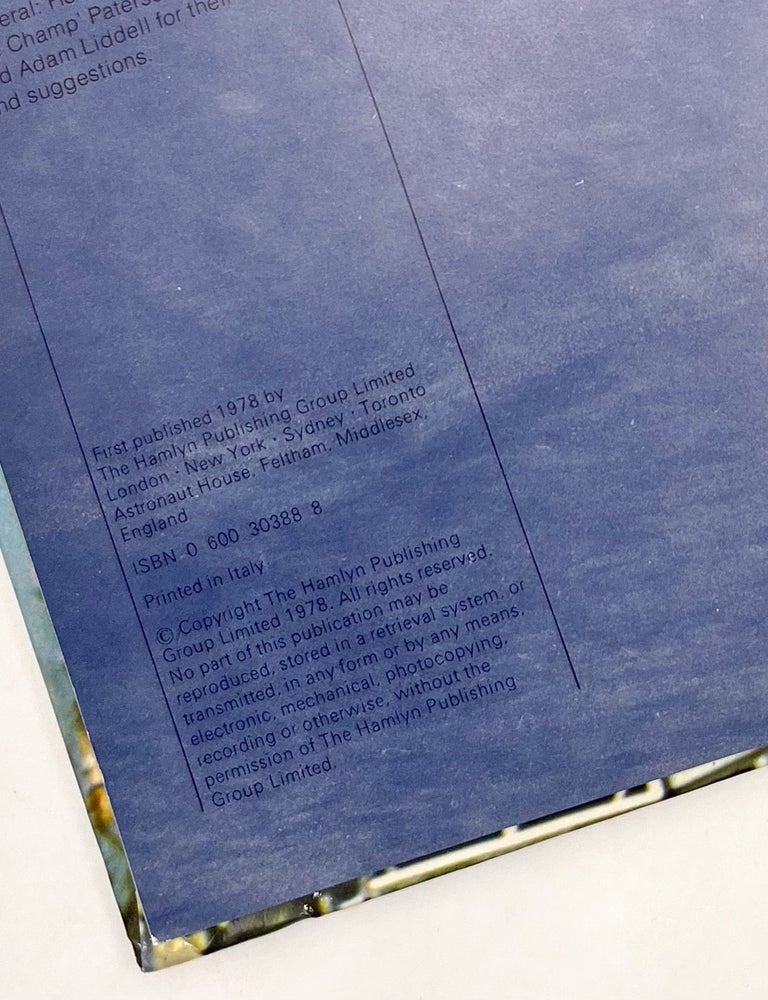 eral:
Champ' Paters
d Adam Liddell for their
nd suggestions.
First published 1978 by
The Hamlyn Publishing Group Limited
London · New York · Sydney · Toronto
Astronaut House, Feltham, Middlesex,
England
ISBN 0 600 30388 8
Printed in Italy
© Copyright The Hamlyn Publishing
Group Limited 1978. All rights reserved.
No part of this publication may be
reproduced, stored in a retrieval system, or
transmitted, in any form or by any means,
electronic, mechanical, photocopying,
recording or otherwise, without the
permission of The Hamlyn Publishing
Group Limited.